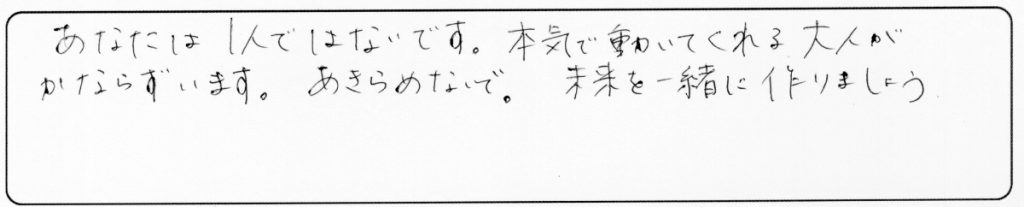 あなたは1人ではないです。本気で動いてくれる大人が
かならずいます。あきらめないで。未来を一緒に作りましょう